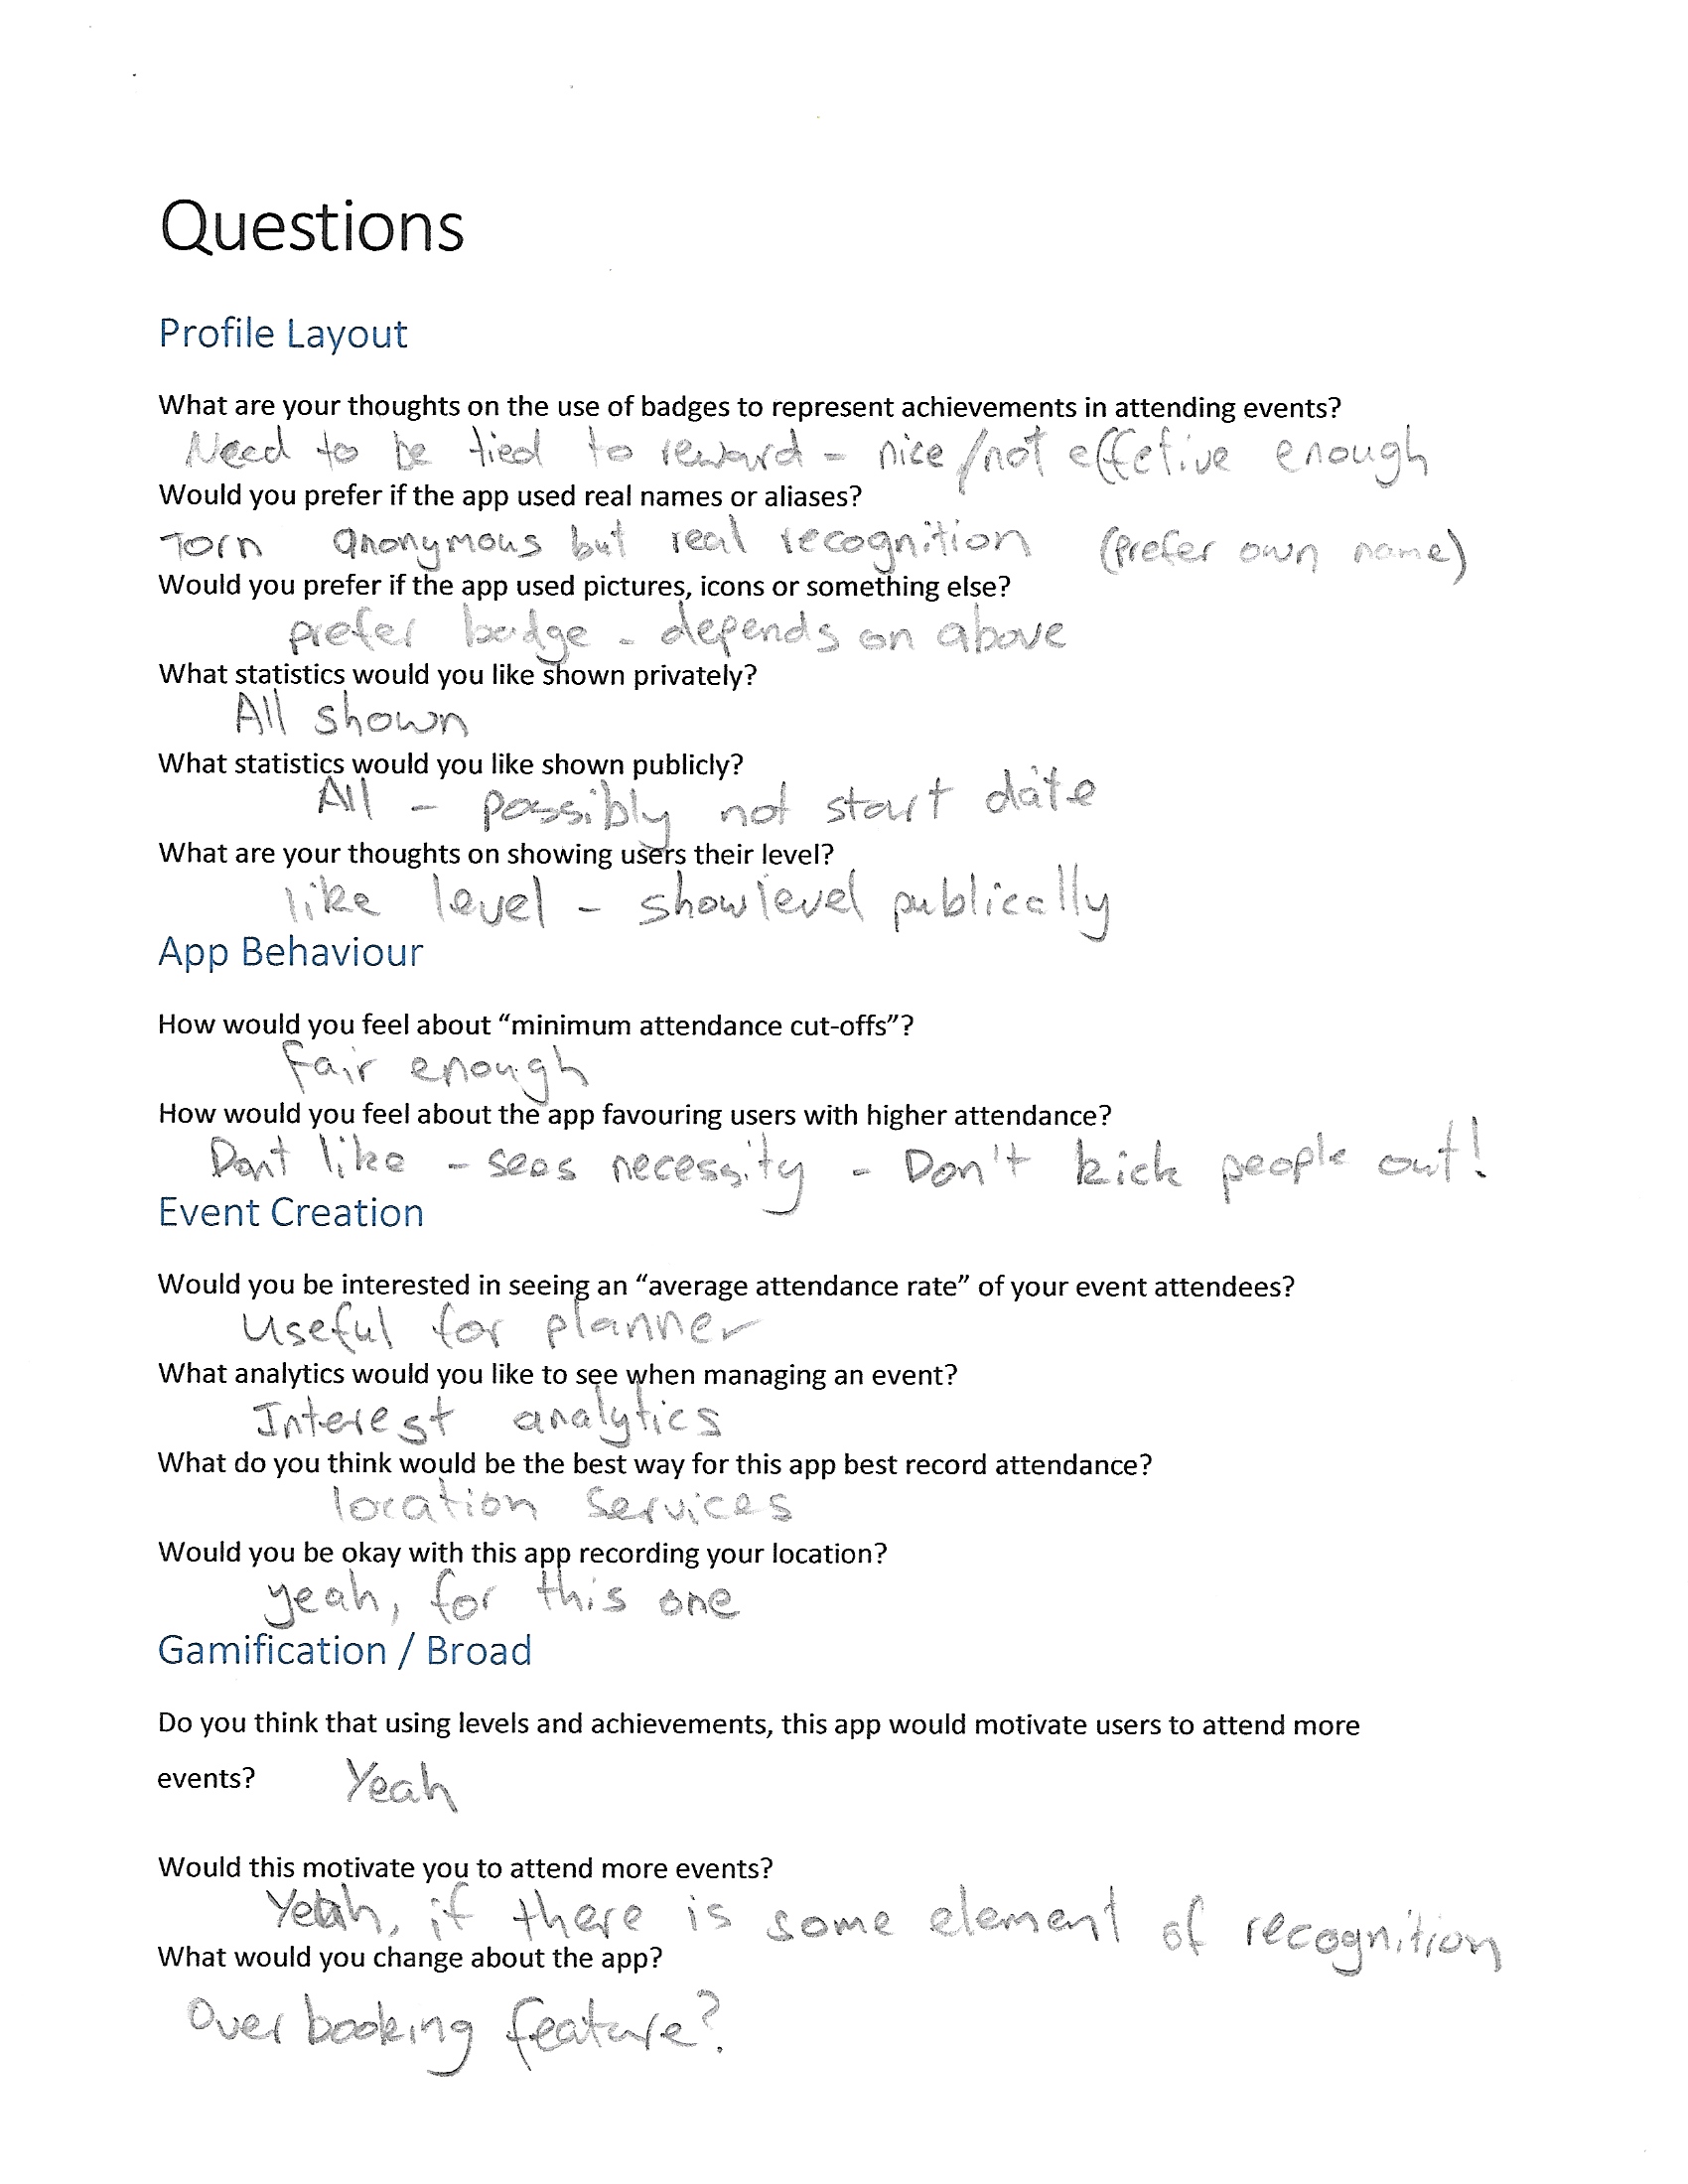 Questions
Profile Layout
What are your thoughts on the use of badges to represent achievements in attending events?
Need to be tied to reward - nice/not effetive enough
Would you prefer if the app used real names or aliases?
Torn anonymous but real recognition (prefer own name)
Would you prefer if the app used pictures, icons or something else?
prefer badge - depends on above
What statistics would you like shown privately?
All shown
What statistics would you like shown publicly?
All - possibly not start date
What are your thoughts on showing users their level?
like level - show level publically
App Behaviour
How would you feel about “minimum attendance cut-offs”?
fair enough
How would you feel about the app favouring users with higher attendance?
Dont like - sees necessity - Don't kick people out!
Event Creation
Would you be interested in seeing an “average attendance rate” of your event attendees?
Useful for planner
What analytics would you like to see when managing an event?
Interest analytics
What do you think would be the best way for this app best record attendance?
location services
Would you be okay with this app recording your location?
yeah, for this one
Gamification / Broad
Do you think that using levels and achievements, this app would motivate users to attend more
events? Yeah
Would this motivate you to attend more events?
Yeah, if there is some element of recognition
What would you change about the app?
Over booking feature?